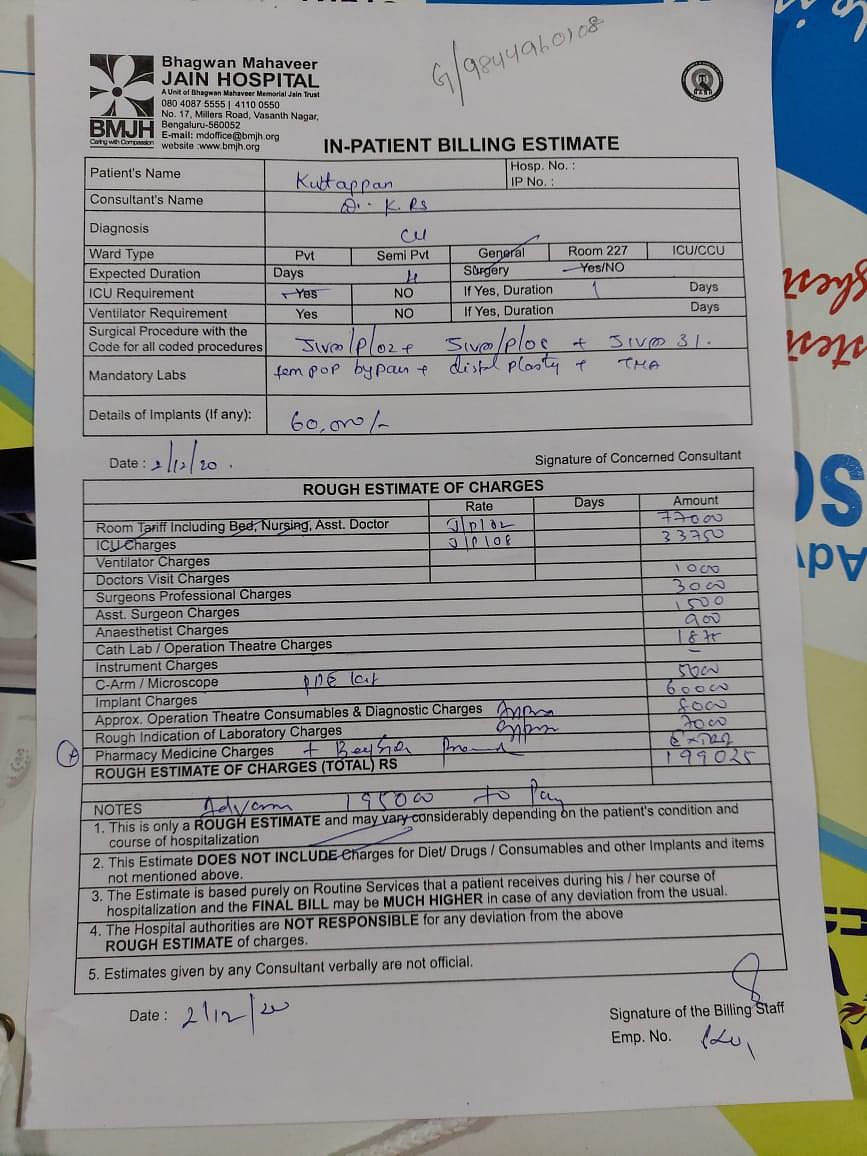 G/9844960108
Bhagwan Mahaveer
JAIN HOSPITAL
A Unit of Bhagwan Mahaveer Memorial Jain Trust
080 4087 5555 | 4110 0550
No. 17, Millers Road, Vasanth Nagar,
Bengaluru-560052
E-mail: mdoffice@bmjh.org
website :www.bmjh.org
BMJH
Caring with Compassion
IN-PATIENT BILLING ESTIMATE
Patient's Name Kuttappan Hosp. No. :
IP No. :
Consultant's Name Dr. K. RS
Diagnosis
Ward Type Pvt Semi Pvt General Room 227 ICU/CCU
Expected Duration Days 4 Surgery Yes/NO
ICU Requirement Yes NO If Yes, Duration 1 Days
Ventilator Requirement Yes NO If Yes, Duration Days
Surgical Procedure with the
Code for all coded procedures
Mandatory Labs fem pop bypass + distal plasty + TMA
Details of Implants (If any): 60,000/-
Date : 2/12/20.
Signature of Concerned Consultant
ROUGH ESTIMATE OF CHARGES
Rate Days Amount
Room Tariff Including Bed, Nursing, Asst. Doctor J/P/02 77000
ICU Charges J/P/08 33750
Ventilator Charges
Doctors Visit Charges 1000
Surgeons Professional Charges 3000
Asst. Surgeon Charges 1500
Anaesthetist Charges 900
Cath Lab / Operation Theatre Charges 1875
Instrument Charges -
C-Arm / Microscope 5000
Implant Charges 60000
Approx. Operation Theatre Consumables & Diagnostic Charges Approx 8000
Rough Indication of Laboratory Charges Approx 7000
Pharmacy Medicine Charges + EXTRA
ROUGH ESTIMATE OF CHARGES (TOTAL) RS 199025
NOTES Advance 195000 to Pay
1. This is only a ROUGH ESTIMATE and may vary considerably depending on the patient's condition and
course of hospitalization
2. This Estimate DOES NOT INCLUDE Charges for Diet/ Drugs / Consumables and other Implants and items
not mentioned above.
3. The Estimate is based purely on Routine Services that a patient receives during his / her course of
hospitalization and the FINAL BILL may be MUCH HIGHER in case of any deviation from the usual.
4. The Hospital authorities are NOT RESPONSIBLE for any deviation from the above
ROUGH ESTIMATE of charges.
5. Estimates given by any Consultant verbally are not official.
Date : 2/12/20
Signature of the Billing Staff
Emp. No.